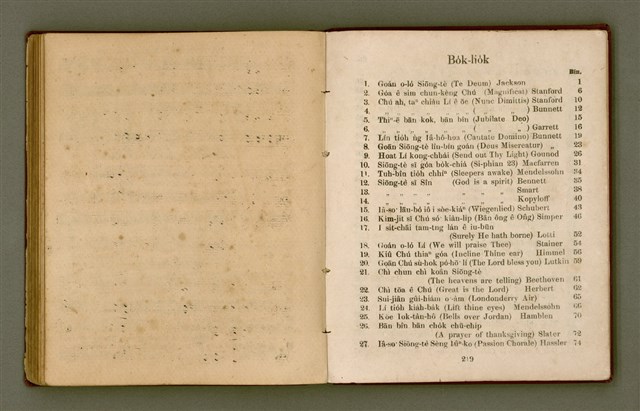 Bo̍k-lio̍k
Bīn.
1. Goán o-ló Siōng-tè (Te Deum) Jackson 1
2. Góa ê sim chun-kèng Chú (Magnificat) Stanford 6
3. Chú ah, taⁿ chiàu Lí ê ōe (Nunc Dimittis) Stanford 10
4. „ „ „ „ „ „ ( „ „ ) Bunnett 12
5. Thiⁿ-ē bān kok, bān bîn (Jubilate Deo) 15
6. „ „ „ „ „ ( „ „ ) Garrett 16
7. Lín tio̍h ǹg Iâ-hô-hoa (Cantate Domino) Bunnett 19
8. Goān Siōng-tè lîn-bín goán (Deus Misereatur) „ 23
9. Hoat Lí kong-chhái (Send out Thy Light) Gounod 26
10. Siōng-tè sī góa bo̍k-chiá (Si-phian 23) Macfarren 31
11. Tuh-bîn tio̍h chhíⁿ (Sleepers awake) Mendelssohn 34
12. Siōng-tè sī Sîn (God is a spirit) Bennett 35
13. „ „ „ „ Smart 38
14. „ „ „ „ Kopyloff 40
15. Iâ-so͘ lāu-bó iô i sòe-kiáⁿ (Wiegenlied) Schubert 43
16. Kim-ji̍t sī Chú só͘ kiàn-li̍p (Bān ông ê Ông) Simper 46
17. I si̍t-chāi tam-tng lán ê iu-būn
(Surely He hath borne) Lotti 52
18. Goán o-ló Lí (We will praise Thee) Stainer 54
19. Kiû Chú thiaⁿ góa (Incline Thine ear) Himmel 56
20. Goān Chú sù-hok pó-hō͘ lí (The Lord bless you) Lutkin 59
21. Chì chun chì koân Siōng-tè
(The heavens are telling) Beethoven 61
22. Chì tōa ê Chú (Great is the Lord) Herbert 62
23. Sui-jiân gûi-hiám o͘-àm (Londonderry Air) 65
24. Lí tio̍h kia̍h-ba̍k (Lift thine eyes) Mendelssohn 66
25. Kòe Iok-tàn-hô (Bells over Jordan) Hamblen 70
26. Bān bîn bān cho̍k chū-chi̍p
(A prayer of thanksgiving) Slater 72
27. Iâ-so͘ Siōng-tè Sèng Iûⁿ-ko (Passion Chorale) Hassler 74
219